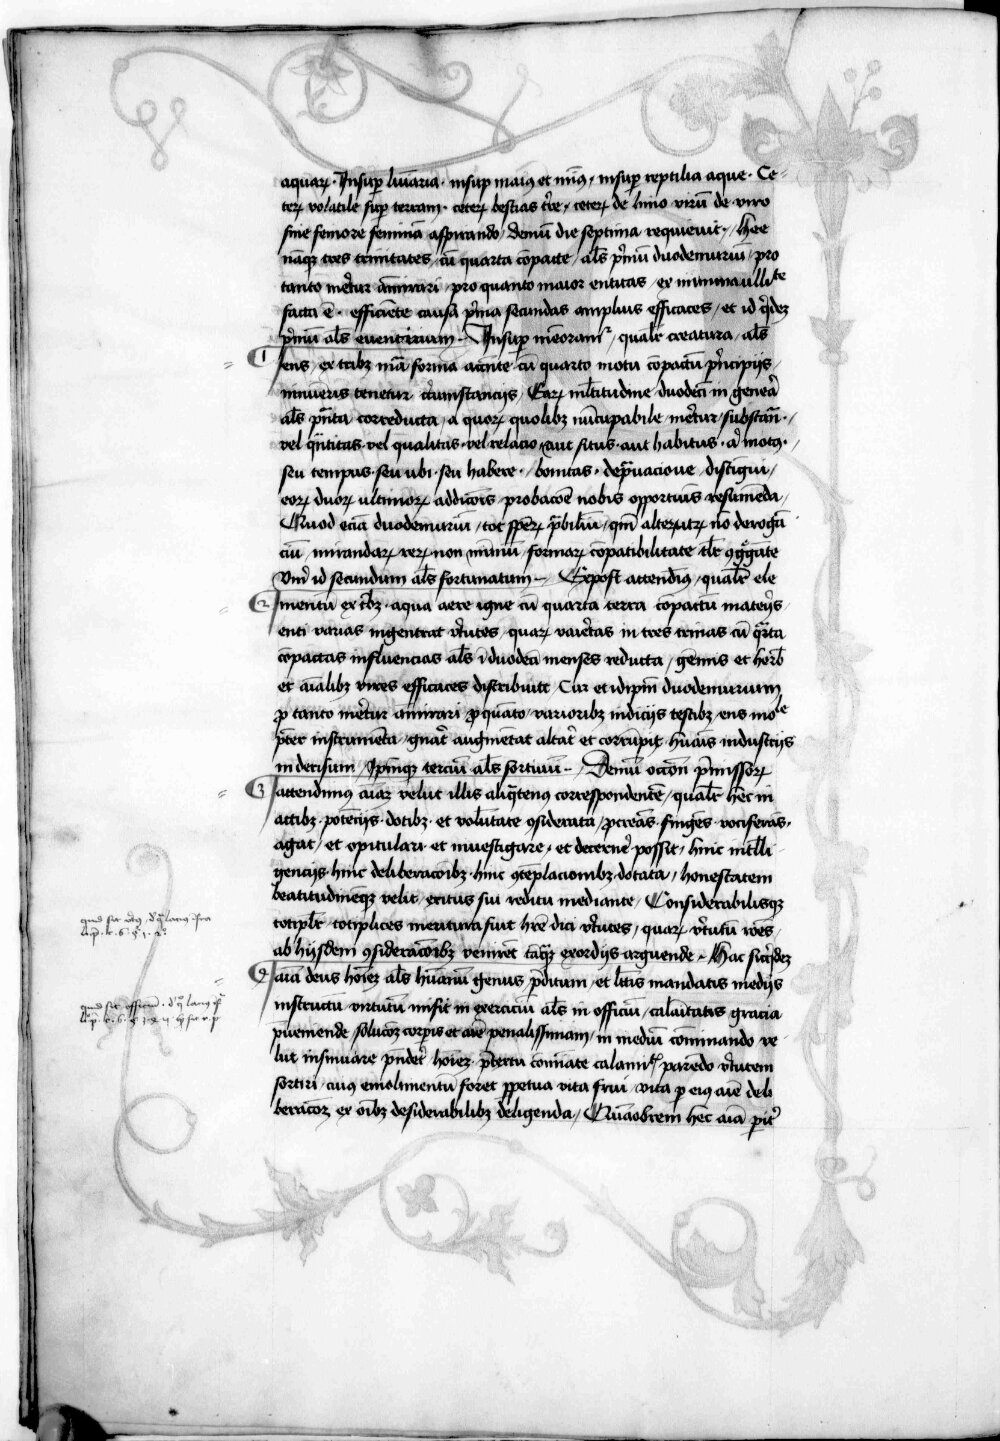 aquaꝝ · Insuꝑ luīaria · insup maiꝰ et minꝰ / insuꝑ reptilia aque · Ce⸗
teꝝ volatile suꝑ terram · ceteꝝ bestias t̄re / ceteꝝ de limo virū de viro
sine femore feminā aspirando / demū die septima requieuit · / Hee
nāqꝫ tres trinitates / cū quarta cōpacte / al̄s p̄mū duodemuriū / pro
tanto mēt̄ur āmirari / pro quanto maior entitas / ex
facta ē · efficiēte causa p̄ma secundas amplius efficaces / et id qͥdeꝫ
p̄mū al̄s euentiruum – Insuꝑ mēoramͬ / qual̄r creatura / al̄s
1 ens / ex tribꝫ mā forma acīnte cū quarto motu cōpactū p̄ncipijs /
innūeris tenetur cͥcumstancijs / Eaꝝ ml̄titudine duodecī in genea
al̄s p̄nta correducta / a quoꝝ quolibꝫ nūcupabile mēt̄ur / substan̄ · /
vel qn̄titas · vel qualitas · vel relacio / aut situs · aut habitus · aͥ motꝰ · /
seu tempus · seu ubi · seu habere · / bonitas · dep̄uacione / distīgui /
eoꝝ duoꝝ ultimoꝝ addicōis / probacōe nobis opportuīs resumēda /
Quod eciā duodemuriū / tot sp̄eꝝ p̄bil̄iū / qm̄ alteꝝutꝝ nō derogā
ciū / mirandaꝝ reꝝ non minimū / formaꝝ cōpatibilitate
Vm̄ id secundum al̄s fortunatum – / Expost attendimꝰ / qual̄r ele
2 mentū ex tͥbꝫ · aqua aere igne cū quarta terra cōpactū mateͥjs /
enti varias ingenerat v̄tutes / quaꝝ vaiet̄as in tres trinas cū qͣrta
cōpactas influencias al̄s ī duodecī menses reducta / gēmis et herb̄
et aīalibꝫ vires efficaces distribuit / Cur et idip̄m duodemurium
ꝓ tanto mēt̄ur āmirari ꝓ quāto / varioribꝫ indicijs testibꝫ / ens mo
p̄ter instrumēta / gn̄at augmētat altat̄ et corrūpit / humāīs industrijs
indecisum / Ipm̄qꝫ terciū al̄s fortiuū – / Demū p̄missoꝝ
3 attendimꝰ aīaꝫ velut illis aliqͣtenꝰ correspondentē / qual̄r hec in
actibꝫ · potēcijs · dotibꝫ · et volūtate ꝯsiderata / ꝓcreās · fingēs · vociferās ·
agat / et opitulari · et inuestigare / et decern̄e possit / hinc intell̄i
gencijs · hinc deliberacōibꝫ · hinc ꝯtēplacionibꝫ dotata / honestatem
beatitudinēqꝫ velit / exitus sui reditu mediante / Considerabilisqꝫ
totipl̄r totiplices meritura siut hr̄e dici v̄tutes / quaꝝ v̄tutū rōes /
ab hijsdem ꝯsideracōibꝫ venirēt tāqͣꝫ exordijs arguende – Hac siqͥdeꝫ
4 aīā deus hoīeꝫ al̄s hūanū genus p̄ditum / et l̄tis mandatis medijs
instructū virtutū misit in exerciciū al̄s in officiū / calāitatis gracia
pueniende / solucōꝫ corꝑis et aīe penalissimam / in mediū cōminando / ve
lut insinuare pn̄det̄ hoīeꝫ · p̄textu cōminate calamitͥs / parēdo v̄tutem
sortiri / cuiꝰ emolimentū foret ꝑpetua vita frui / vita ꝑ eiꝰ aīe deli
beracōꝫ ex oībꝫ desiderabilibꝫ deligenda / Quāobrem hec aīa ꝑit̄